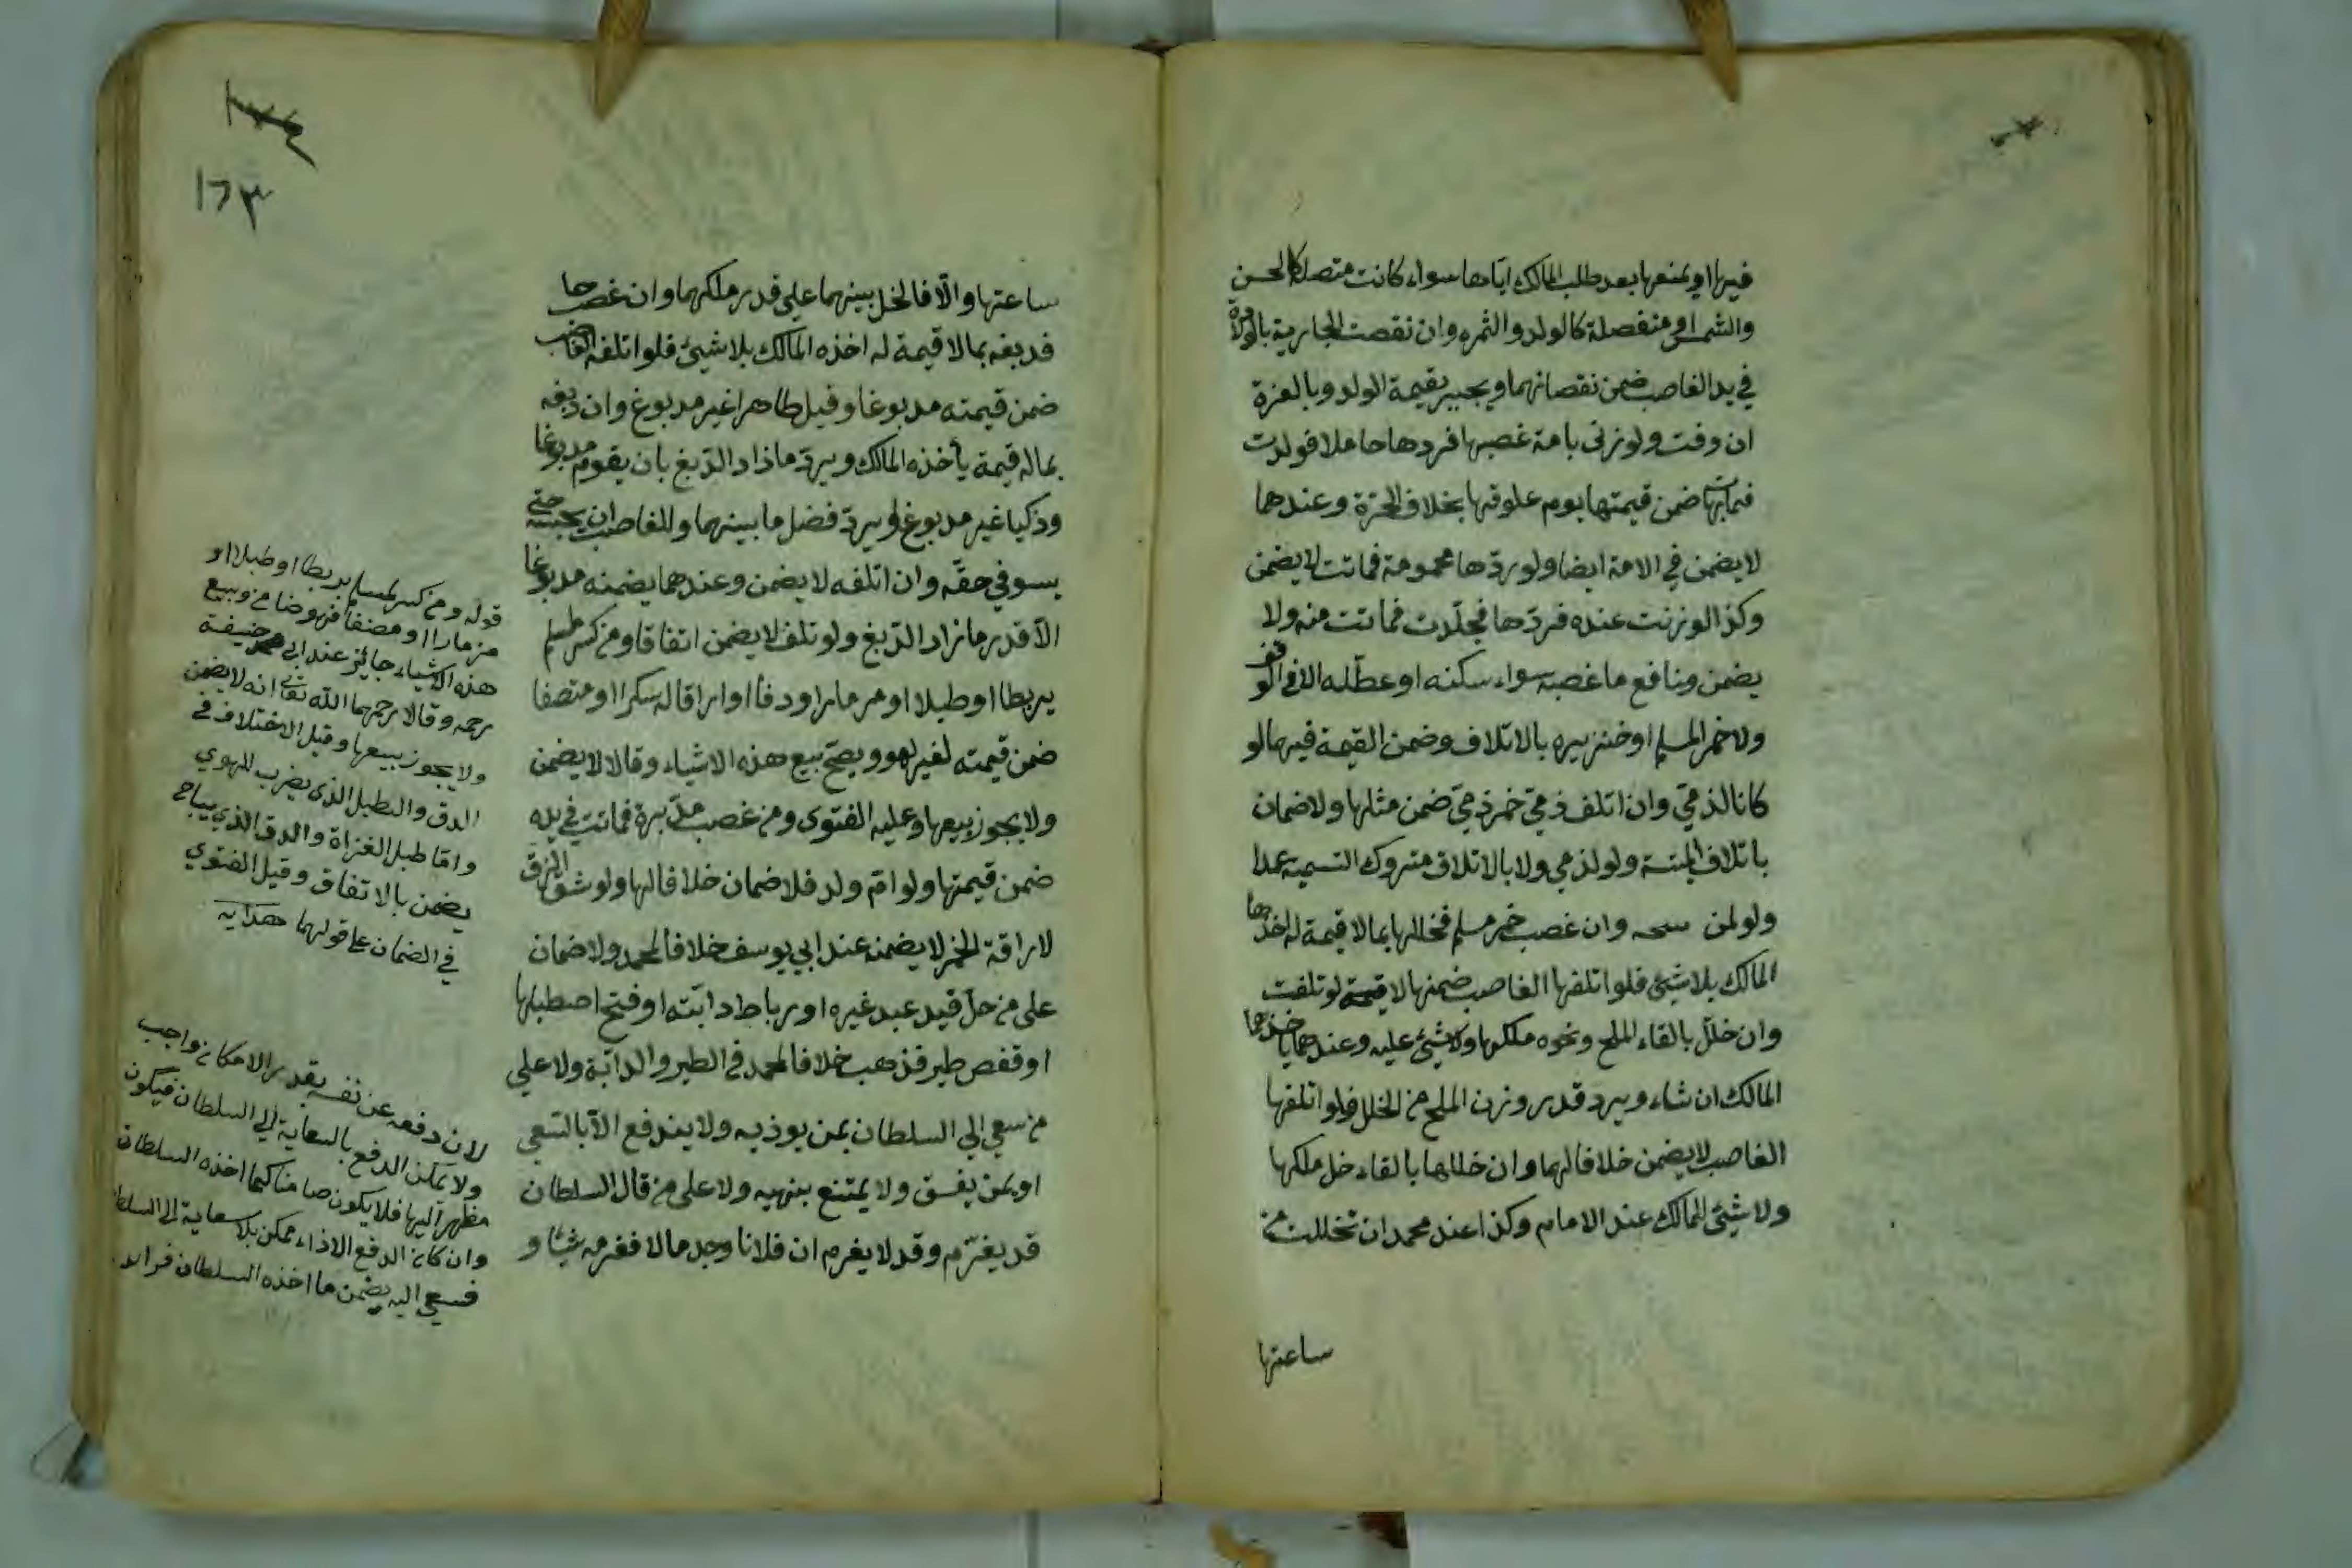 فيها او يمنعها بعد طلب المالك اياها سواء كانت متصلة كالحسن
والسمن او منفصلة كالولد والثمره وان نقصت الجارية بالولادة
في يد الغاصب ضمن نقصانهما ويجبر بقيمة الولد وبالغرة
ان وفت ولو زنى بامة غصبها فردها حاملا فولدت
فماتت بها ضمن قيمتها يوم علوقها بخلاف الحرة وعندهما
لا يضمن في الامة ايضا ولو ردّها محمومة فماتت لا يضمن
وكذا لو زنت عنده فردّها فجلّدت فماتت منه ولا
يضمن منافع ما غصبه سواء سكنه او عطّله الا في الوقف
ولا خمر المسلم او خنزيره بالاتلاف وضمن القيمة فيهما لو
كانا لذميّ وان اتلف ذميّ خمر ذميّ ضمن مثلها ولا ضمان
باتلاف الميتة ولو لذمي ولا بالاتلاف متروك التسمية عمدا
ولو لمن وان غصب خمر مسلم فخللها بما لا قيمة له اخذها
المالك بلا شيئ فلو اتلفها الغاصب ضمنها لا قيمة لو تلفت
وان خلّل بالقاء الملح ونحوه ملكها ولا شيئ عليه وعندهما ياخذها
المالك ان شاء ويرد قدر وزن الملح من الخلل فلو اتلفها
الغاصب لا يضمن خلافا لهما وان خللها بالقاء خل ملكها
ولا شيئ للمالك عند الامام وكذا عند محمد ان تخللت من
ساعتها
١٧٤
١٦٣
ساعتها والّا فالخل بينهما على قدر ملكهما وان غصب جلدا
فدبغه بما لا قيمة له اخذه المالك بلا شيئ فلو اتلفه الغاصب
ضمن قيمته مدبوغا وقيل طاهرا غير مدبوغ وان دبغه
بماله قيمة يأخذه المالك ويردّ ما زاد الدّبغ بان يقوم مدبوغا
وذكيا غير مدبوغ ويردّ فضل ما بينهما وللغاصب ان يحبسه حتى
يسوفي حقّه وان اتلفه لا يضمن وعندهما يضمنه مدبوغا
الّا قدر ما زاد الدّبغ ولو تلف لا يضمن اتفاقا ومن كسر لمسلم
بربطا او طبلا او مزمارا او دفّا او اراقا له سكرا او منصفا
ضمن قيمته لغير لهو ويصحّ بيع هذه الاشياء وقالا لا يضمن
ولا يجوز بيعها وعليه الفتوى ومن غصب مدبّرة فماتت في يده
ضمن قيمتها ولو امّ ولد فلا ضمان خلافا لهما ولو شق الزق
لاراقة الخمر لا يضمنه عند ابي يوسف خلافا لمحمد ولا ضمان
على من حلّ قيد عبد غيره او رباط دابّته او فتح اصطبلها
او قفص طير فذهب خلافا لمحمد في الطير والدابّة ولا على
من سعي الى السلطان بمن يوذيه ولا يندفع الّا بالسّعي
او بمن يفسق ولا يمتنع بنهيه ولا على من قال لسلطان
قد يغرّم وقد لا يغرم ان فلانا وجد مالا فغرمه شيئا و
قوله ومن كسر لمسلم بربطا او طبلا او
مزمارا او منصفا فهو ضامن وبيع
هذه الاشياء جائز عند ابي حنيفة
رحمه وقالا رحمهما الله تعالى انه لا يضمن
ولا يجوز بيعها وقيل الاختلاف في
الدق والطبل الذي يضرب للهوي
واما طبل الغزاة والدق الذي يباح
يضمن بالاتفاق وقيل الفتوي
في الضمان على قولهما هدايه
لان دفعه عن نفسه بقدر الامكان واجب
ولا يمكن الدفع بالسعاية الى السلطان فيكون
مظهرا اليها فلا يكون ضامنا كلما اخذه السلطان
وان كان الدفع الاذاء ممكن بلا سعاية الى السلطا
فسعي اليه يضمن ما اخذه السلطان فرايد